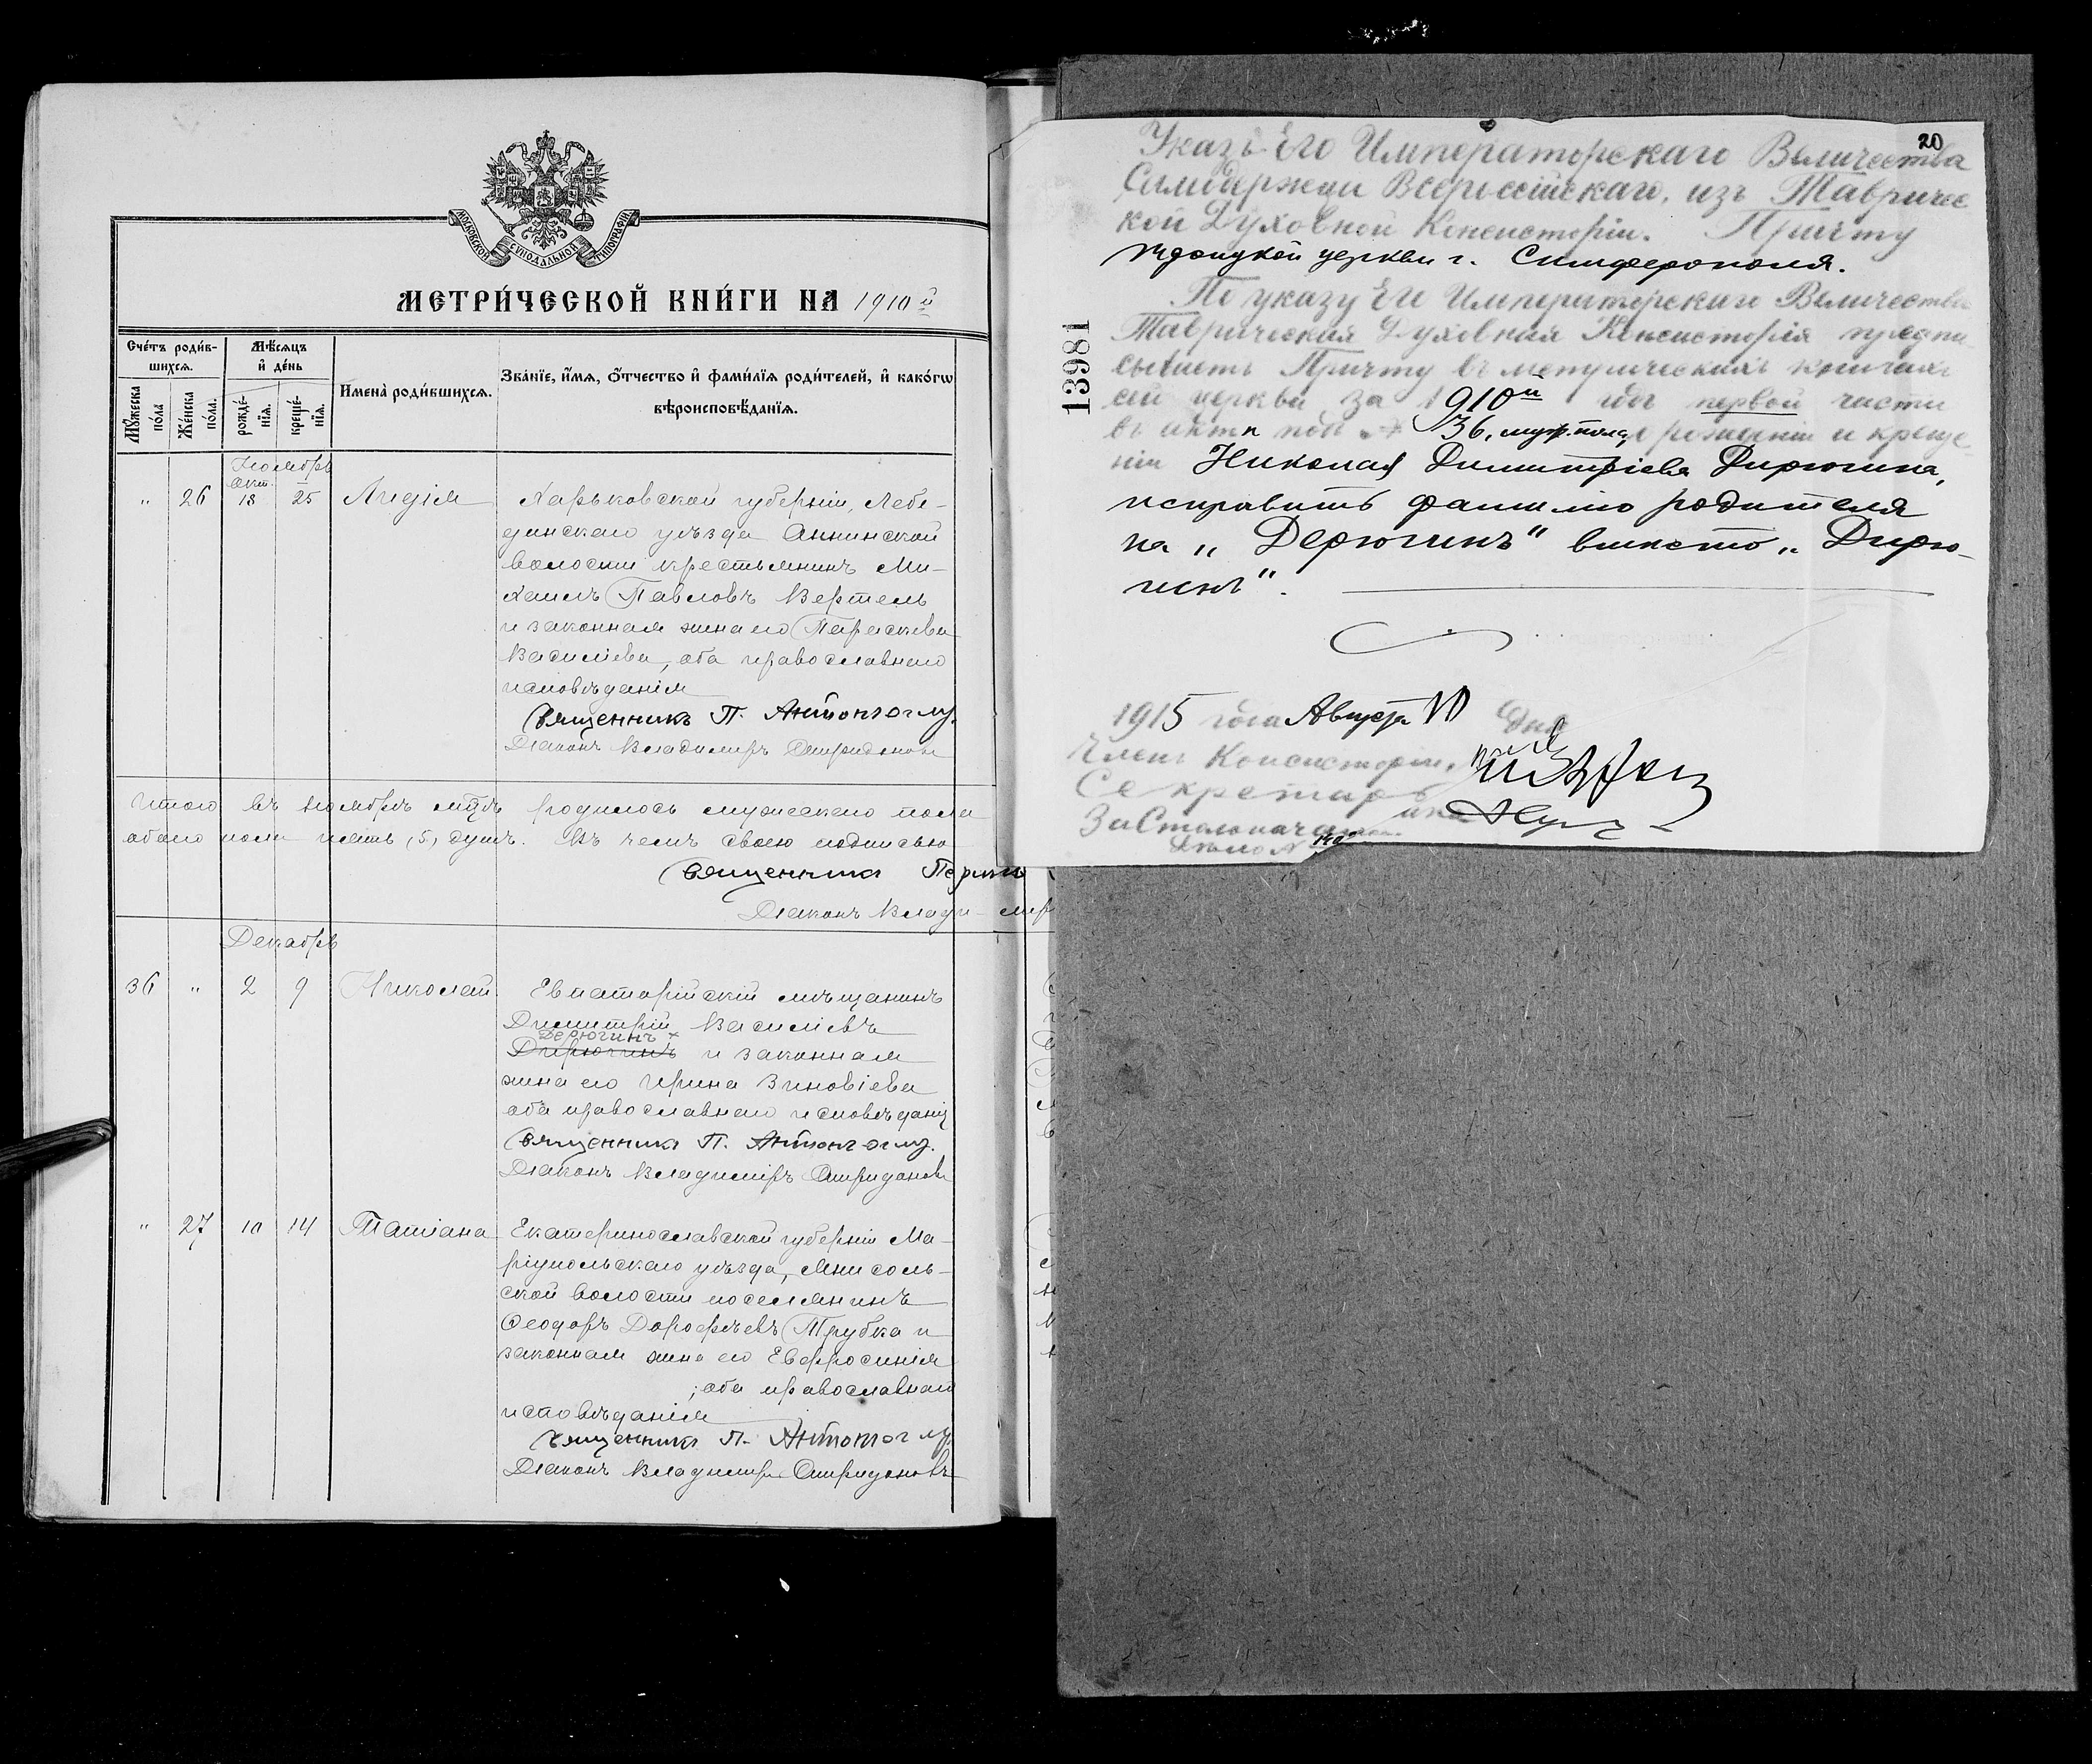 МОСКОВСКОЙ СѴНОДАЛЬНОЙ ТИПОГРАФІИ
МЕТРИ́ЧЕСКОЙ КНИ́ГИ НА 1910й
Сче́тъ роди́в-
шихся.
Мѣ́сяцъ
и҆ де́нь
Мꙋ́жеска
по́ла
Же́нска
по́ла.
рожде́-
нїя.
креще́-
нїя.
Имена̀ роди́вшихся.
Зва́нїе, и҆́мя, ѻ҆́тчество и҆ фами́лїя роди́телей, и҆ како́гѡ
вѣроисповѣ́данїя.
Ноябрь
Окт.
„ 26 18 25 Лидія
Харьковской губерніи, Лебе-
динскаго уѣзда Аннинской
волости крестьянинъ Ми-
хаилъ Павловъ Вертель
и законная жена его Параскева
Василіева, оба православнаго
исповѣданія
Священникъ П. Антоноглу.
Діаконъ Владимиръ Спиридоновъ
Итого въ ноябрѣ мѣ̃цѣ родилось мужескаго пола
обоего пола пять (5) душъ. Въ чемъ своею подписью
Священникъ
Діаконъ Влади-мир
Декабрь
36 „ 2 9 Николай
Евпаторійскій мѣщанинъ
Димитрій Василіевъ
Дерюгинъ ×
Дирюгинъ и законная
жена его Ирина Зиновіева
оба православнаго исповѣданія
Священникъ П. Антоноглу.
Діаконъ Владимиръ Спиридоновъ
„ 27 10 14 Татіана
Екатеринославской губерніи Ма-
ріупольскаго уѣзда, Янисоль-
ской волости поселянинъ
Ѳеодоръ Дороѳѣевъ Трубка и
законная жена его Евфросинія
; оба православнаго
исповѣданія
Священникъ П. Антоноглу
Діаконъ Владимиръ Спиридоновъ
20
Указъ Его Императорскаго Величества
Самодержца Всероссійскаго, изъ Тавричес
кой Духовной Консисторіи. Причту
церкви г. Симферополя.
По указу Его Императорскаго Величества
Таврическая Духовная Консисторія предпи
сываетъ Причту въ метрическихъ книгахъ
сей церкви за 1910й годъ первой части
въ актѣ подъ № 36, муж. пола, о рожденіи и креще
ніи Николая Димитріева Дирюгина,
исправить фамилію родителя
на „Дерюгинъ" вмѣсто „Дирю-
гинъ".
13981
1915 года Августа 10 дня
Членъ Консисторіи,
Секретарь
За Столоначальника
Дѣло №